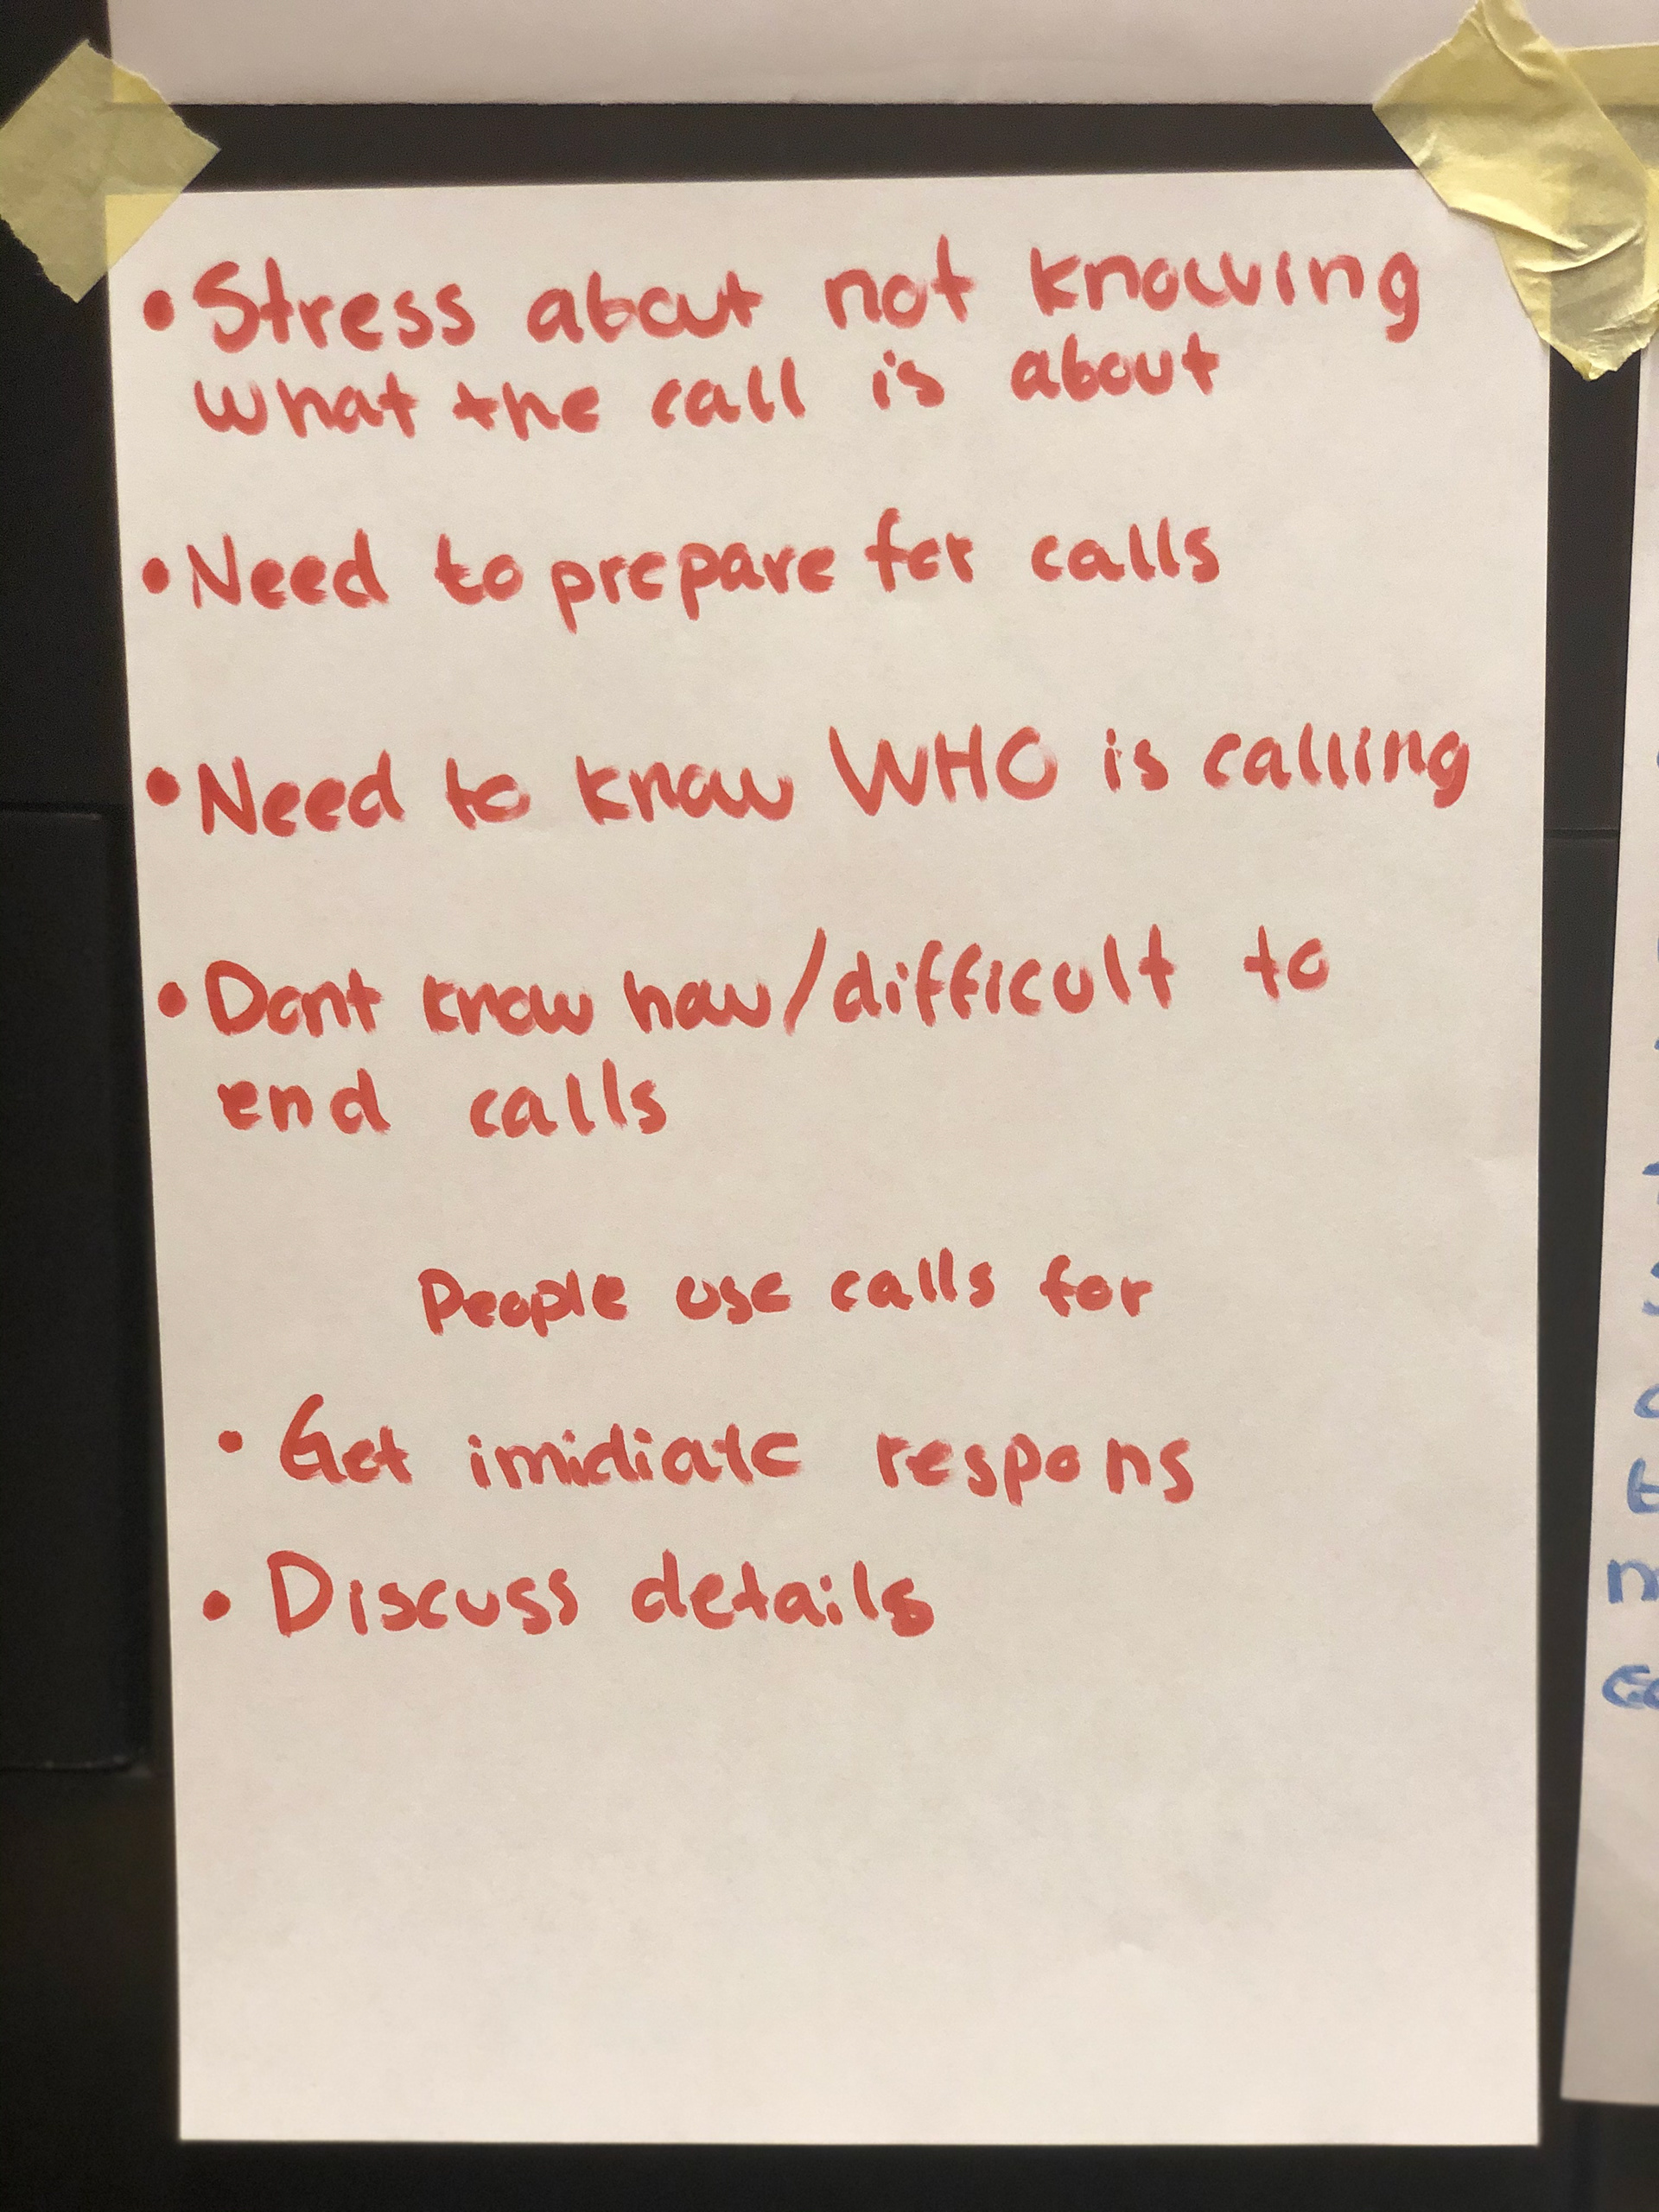 • Stress about not knowing
what the call is about
• Need to prepare for calls
• Need to know WHO is calling
• Dont know how/difficult to
end calls
People use calls for
• Get imidiate respons
• Discuss details